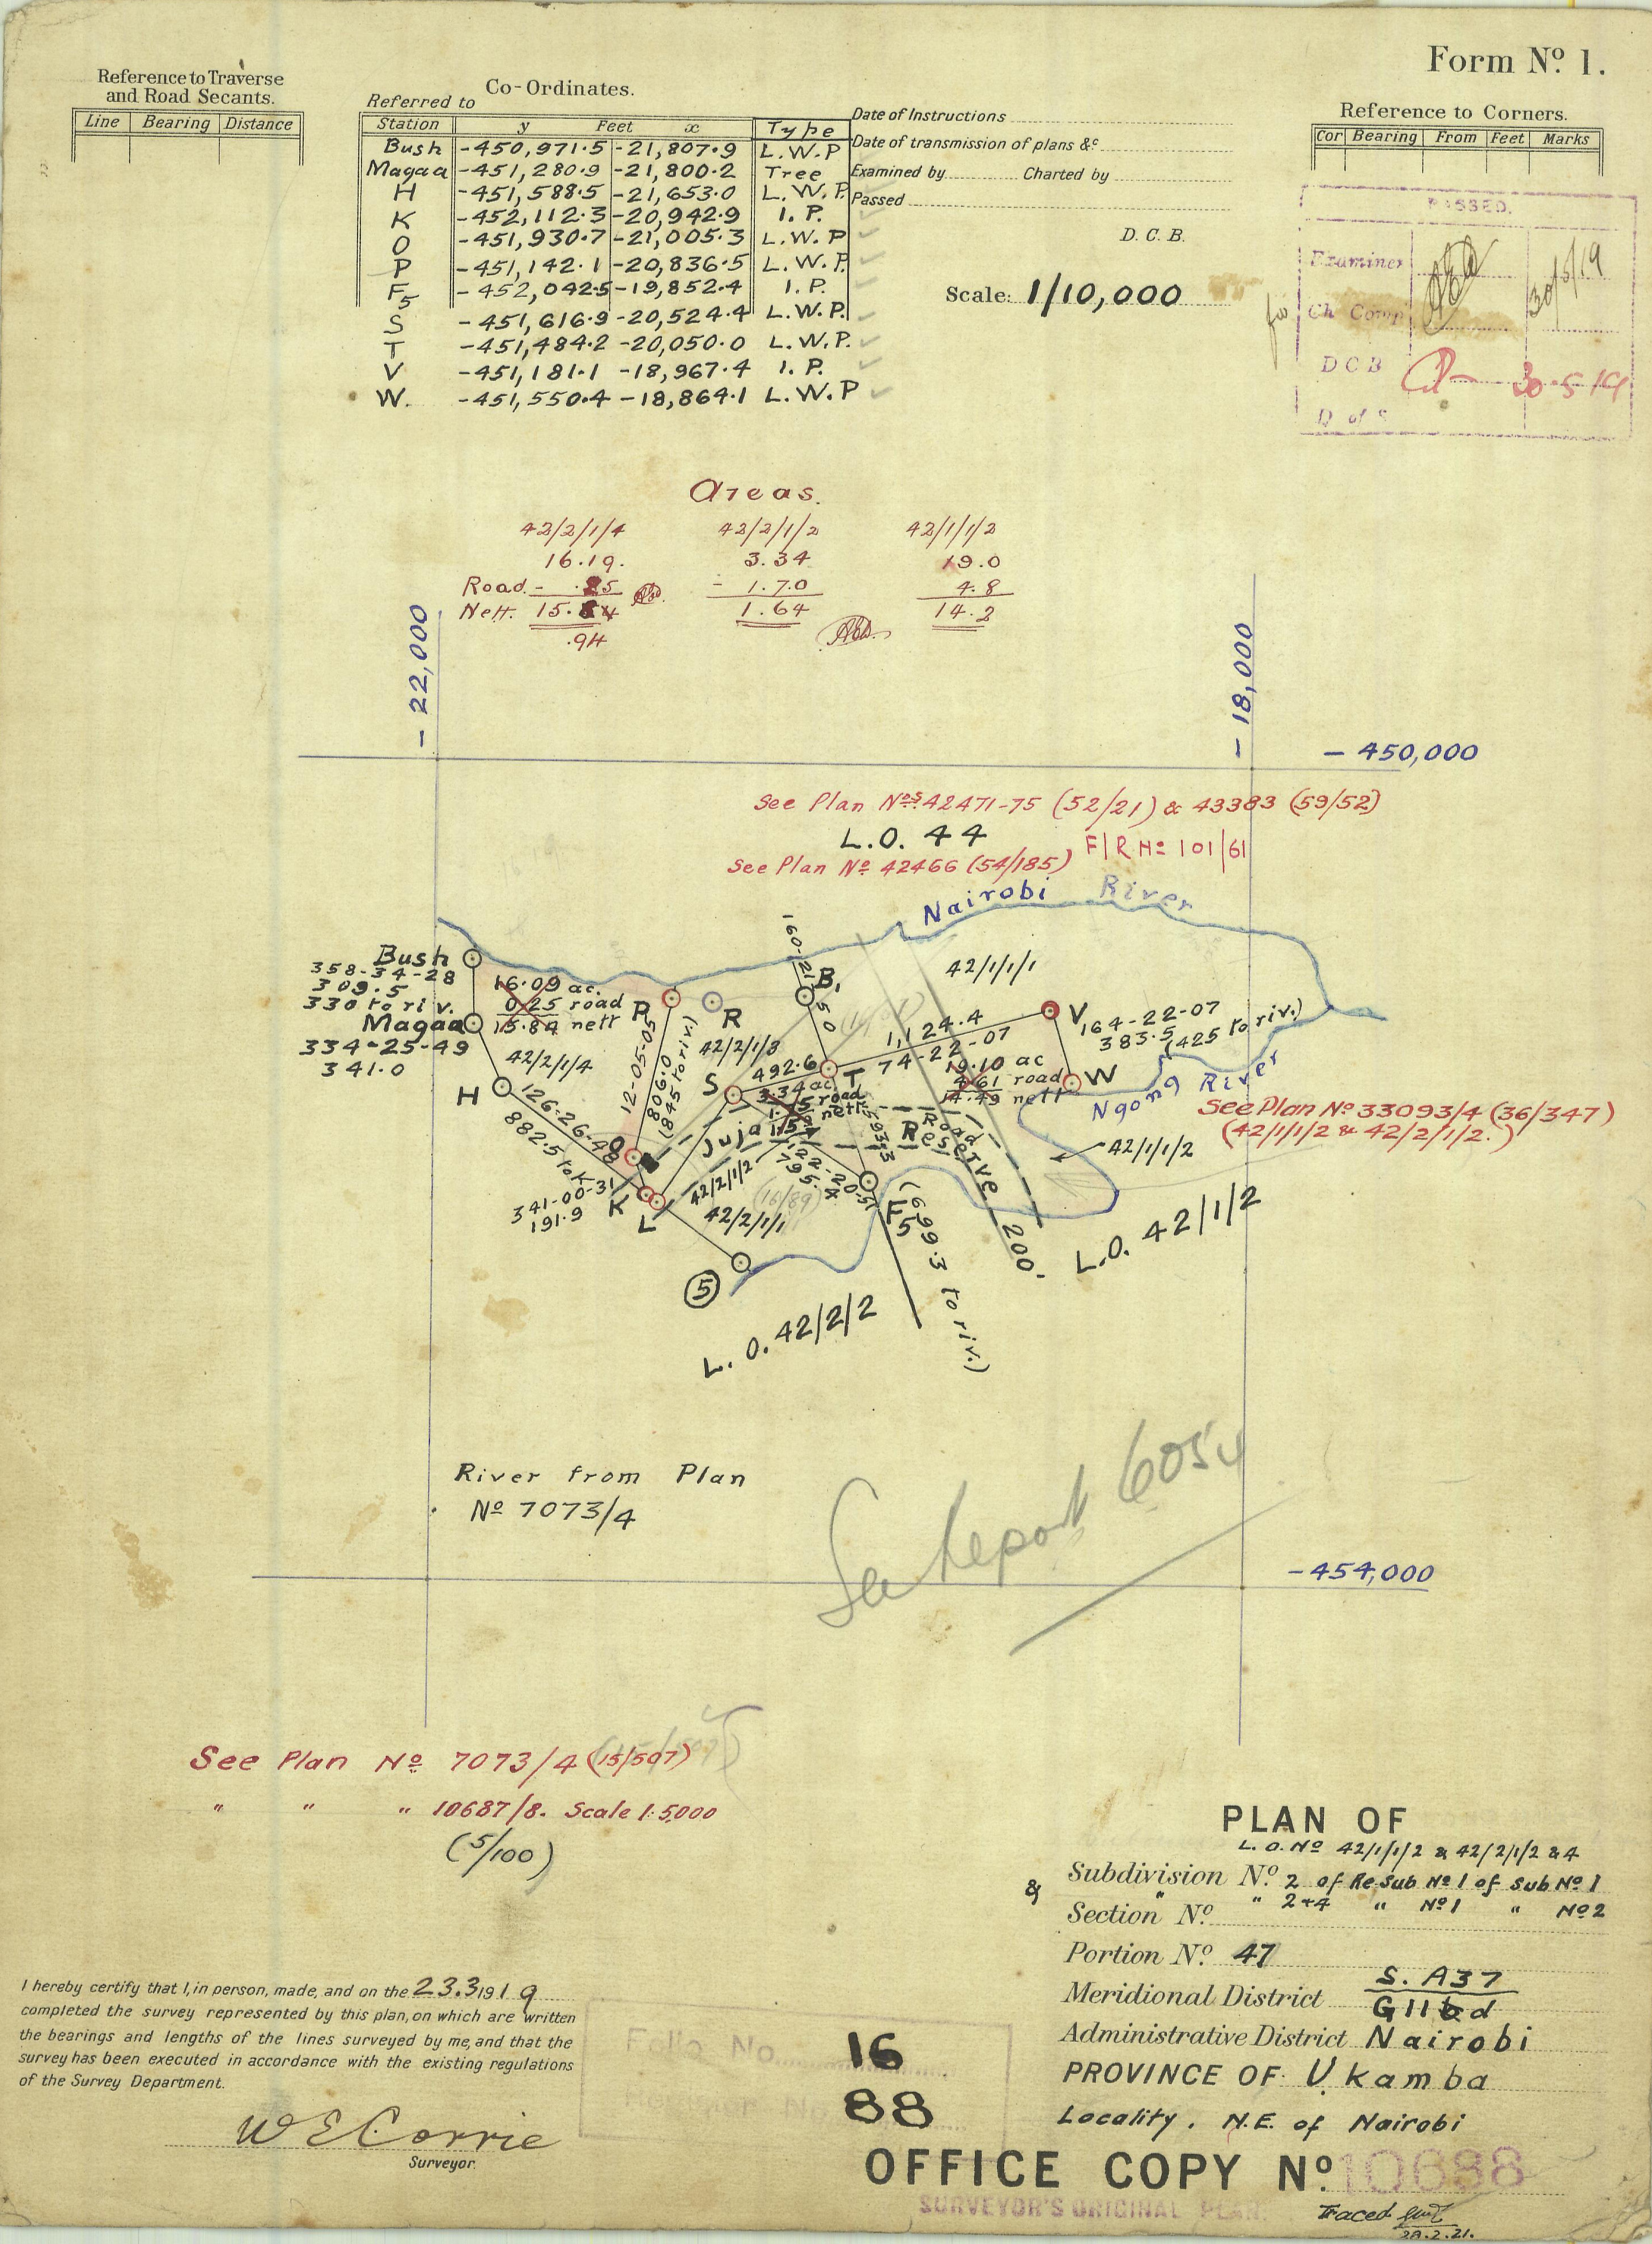 Form Nº 1.
Reference to Traverse
and Road Secants.
Line Bearing Distance
Co-Ordinates.
Referred to
Station y Feet x Type
Bush -450,971.5 -21,807.9 L.W.P
Magaa -451,280.9 -21,800.2 Tree
H -451,588.5 -21,653.0 L.W.P.
K -452,112.3 -20,942.9 I.P.
O -451,930.7 -21,005.3 L.W.P
P -451,142.1 -20,836.5 L.W.P.
F5 -452,042.5 -19,852.4 I.P.
S -451,616.9 -20,524.4 L.W.P.
T -451,484.2 -20,050.0 L.W.P.
V -451,181.1 -18,967.4 I.P.
W. -451,550.4 -18,864.1 L.W.P
Date of Instructions
Date of transmission of plans &c
Examined by Charted by
Passed
D.C.B.
Scale: 1/10,000
Reference to Corners.
Cor Bearing From Feet Marks
PASSED.
Examiner
30/5/19
for Ch Comp
D C B 30-5-19
D of S
Areas.
42/2/1/4 42/2/1/2 42/1/1/2
16.19. 3.34 19.0
Road - .25 - 1.70 4.8
Nett. 15.84 1.64 14.2
.94
- 22,000
- 18,000
- 450,000
See Plan Nos 42471-75 (52/21) & 43383 (59/52)
L.O. 44
F/R Nº 101/61
See Plan Nº 42466 (54/185)
Nairobi River
Bush
358-34-28
309.5
330 to riv.
Magaa
334-25-49
341.0
H
16.09 ac.
0.25 road
15.84 nett
42/2/1/4
126-26-48
882.5 to K
341-00-31
191.9
K
L
O
P
R
12-05-05
806.0
(845 to riv.)
42/2/1/3
S
492.6
T
B1
160-21-50
1,124.4
74-22-07
42/1/1/1
V
164-22-07
383.5
(425 to riv.)
W
19.10 ac
4.61 road
14.49 nett
3.34 ac
road
nett
Juja
Road
Reserve
593.3
122-20-51
795.4
42/2/1/2
(16/89)
42/2/1/1
F5
(699.3 to riv.)
200.
5
Ngong River
See Plan Nº 33093/4 (36/347)
(42/1/1/2 & 42/2/1/2.)
42/1/1/2
L.O. 42/1/2
L.O. 42/2/2
River from Plan
Nº 7073/4
See Report 6054
- 454,000
See Plan Nº 7073/4 (15/507)
" " " 10687/8. Scale 1:5000
(5/100)
PLAN OF
L.O. Nº 42/1/1/2 & 42/2/1/2 & 4
Subdivision Nº 2 of Re-Sub Nº 1 of Sub Nº 1
& " " 2+4 " Nº 1 " Nº 2
Section Nº
Portion Nº 47
Meridional District S. A37
G11bd
Administrative District Nairobi
PROVINCE OF Ukamba
Locality. N.E. of Nairobi
I hereby certify that I, in person, made, and on the 23.3.1919
completed the survey represented by this plan, on which are written
the bearings and lengths of the lines surveyed by me, and that the
survey has been executed in accordance with the existing regulations
of the Survey Department.
W E Corrie
Surveyor.
Folio No. 16
88
OFFICE COPY Nº 10688
SURVEYOR'S ORIGINAL PLAN.
Traced
28.2.21.